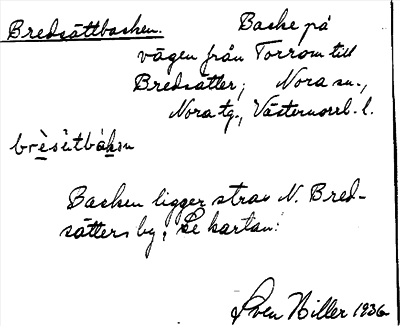 Bredsättbacken. Backe på
vägen från Torrom till
Bredsätter, Nora sn.,
Nora tg., Västernorrl. l.
brèsètbákan
Backen ligger strax N. Bred-
sätters by. Se kartan!
Sven Hiller 1936